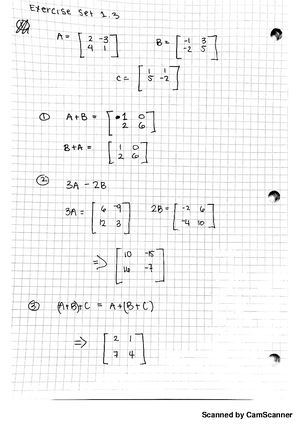 Exercise Set 1.3
A = [ 2 -3
4 1 ]
B = [ -1 3
-2 5 ]
C = [ 1 1
5 -2 ]
① A+B = [ 1 0
2 6 ]
B+A = [ 1 0
2 6 ]
② 3A - 2B
3A = [ 6 -9
12 3 ]
2B = [ -2 6
-4 10 ]
=> [ 10 -15
16 -7 ]
③ (A+B)+C = A+(B+C)
=> [ 2 1
7 4 ]
Scanned by CamScanner